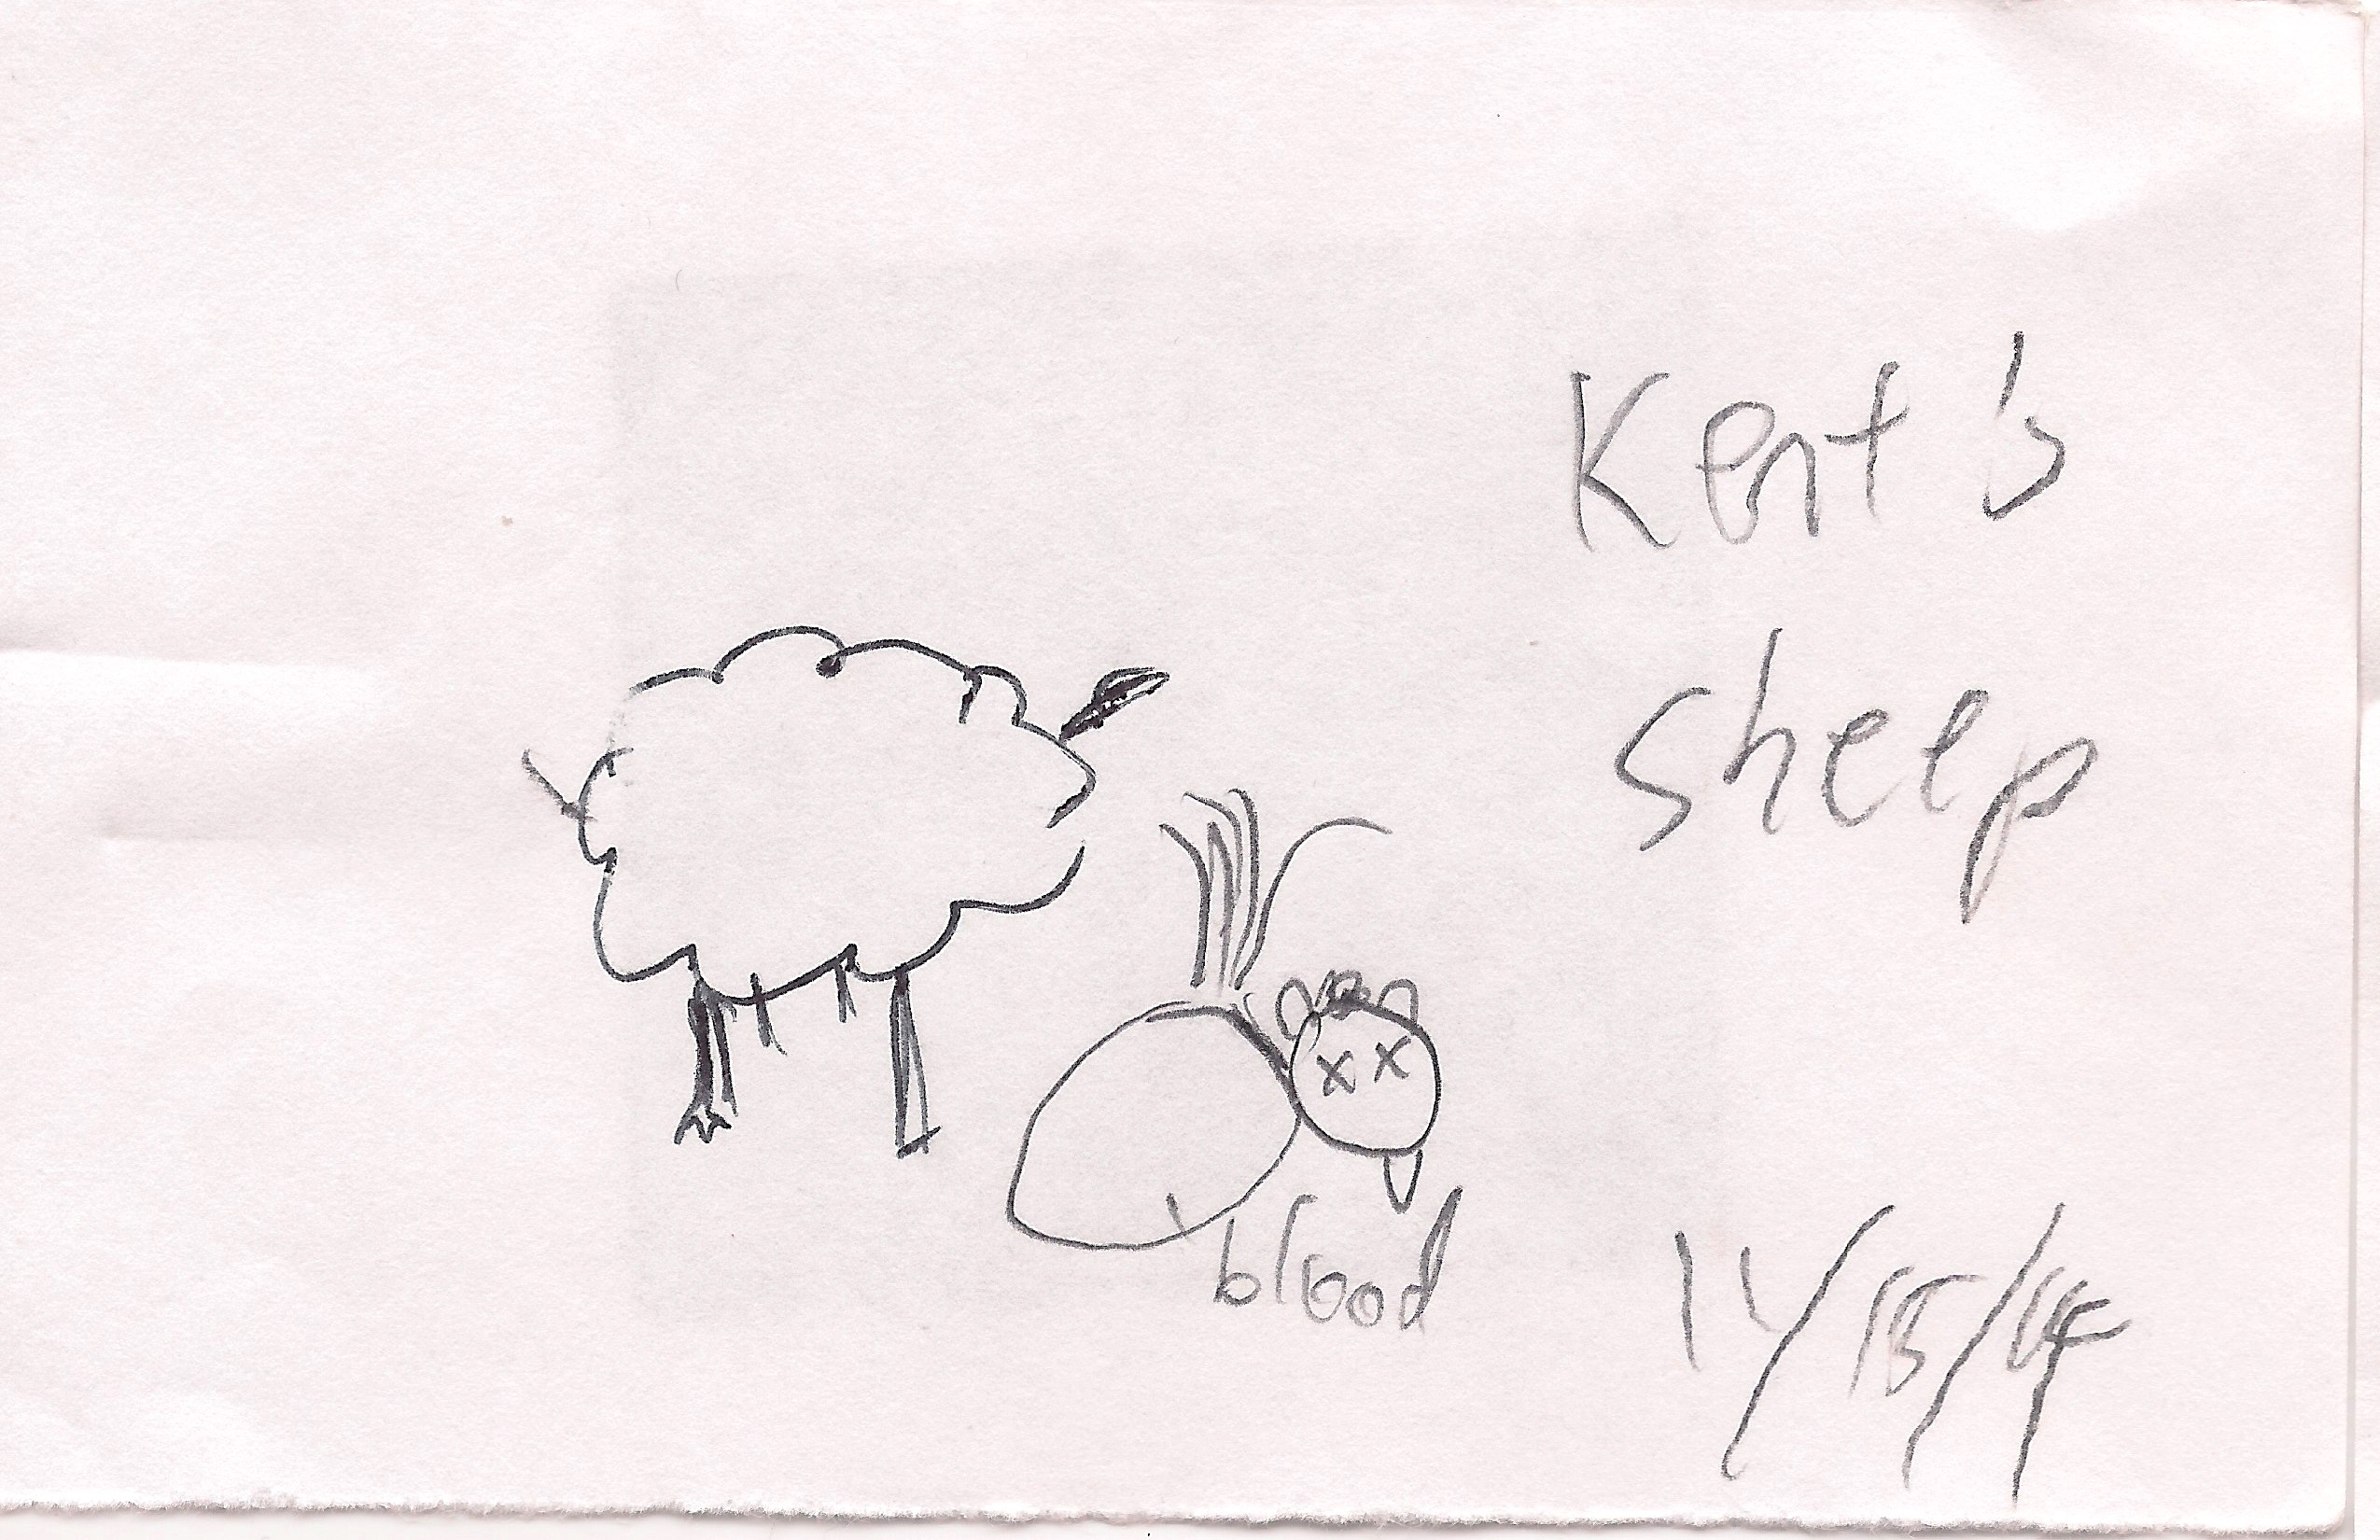 Kent's
Sheep
blood
11/15/14